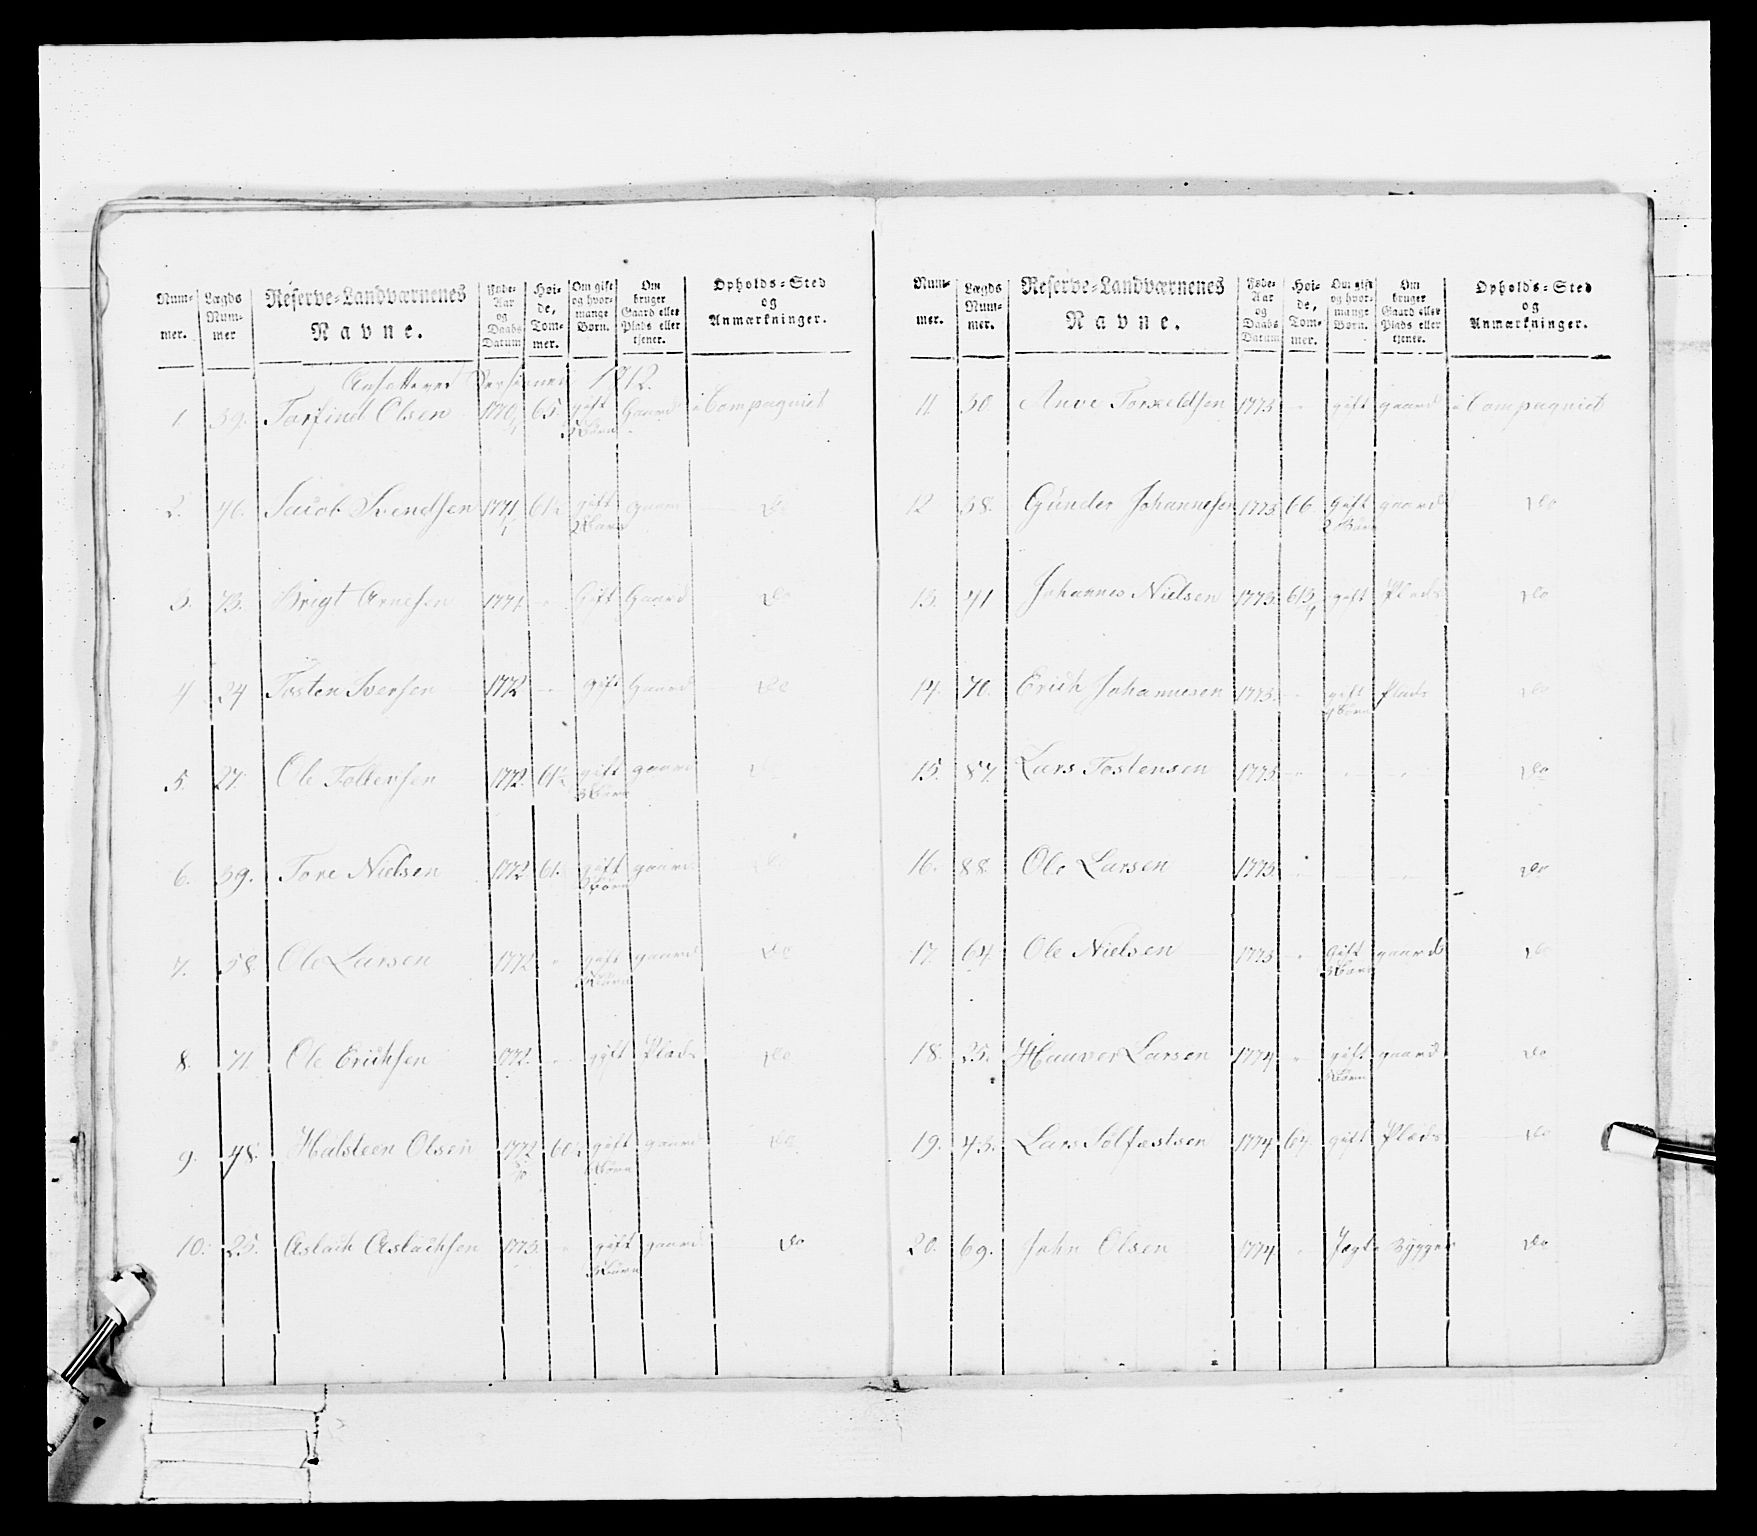 Num-
mer.
Lægds
Num-
mer
Reserve-Landværnenes
Navne.
Føde-
Aar
og
Daabs
Datum
Høi-
de,
Tom-
mer.
Om gift
og hvor-
mange
Børn.
Om
bruger
Gaard eller
Plads eller
tjener.
Opholds-Sted
og
Anmærkninger.
1812.
1. 39. Torfind Olsen 1770 65. gift Gaard i Compagniet
3 Børn
2. 46. Jacob Svendsen 1771 61 gift gaard do
2 Børn
3. 73. Brigt Arnesen 1771 - Gift Gaard do
4 24 Tosten Iversen 1772 - gift Gaard do
5. 27. Ole Tollevsen 1772. 61 gift gaard do
3 Børn
6. 39. Tore Nielsen 1772 61. gift gaard do
3 Børn
7. 58 Ole Larsen 1772 " gift gaard do
3 Børn
8. 71. Ole Erichsen 1772. - gift Plads do
9. 48. Halsteen Olsen 1772 60 gift gaard do
Børn
10. 25. Aslach Aslachsen 1773. " gift gaard do
3 Børn
Num-
mer.
Lægds
Num-
mer.
Reserve-Landværnenes
Navne.
Føde-
Aar
og
Daabs
Datum
Høi-
de,
Tom-
mer.
Om gift
og hvor-
mange
Børn.
Om
bruger
Gaard eller
Plads eller
tjener.
Opholds-Sted
og
Anmærkninger.
11. 30. Torkeldsen 1773 - gift gaard i Compagniet
12 38. Gunder Johannesen 1773 66 Gift gaard do
2 Børn
13. 41 Johannes Nielsen 1773. gift Plads do
14. 70. Erich Johannesen 1773. - gift Plads do
Børn
15. 87. Lars Tostensen 1773 - - - do
16. 88. Ole Larsen 1773. - - - do
17. 64 Ole Nielsen 1773 - Gift gaard do
3 Børn
18. 25. Haaver Larsen 1774 " gift gaard do
3 Børn
19. 43. Lars Solfæstsen 1774 64. gift Plads do
20. 69. John Olsen 1774 - Jægt Bygger do